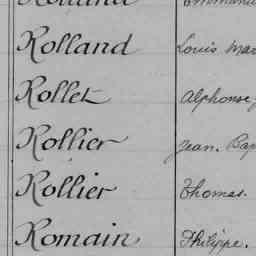 Rolland Louis
Rollet Alphonse
Rollier Jean. Bap
Rollier Thomas.
Romain Philippe.